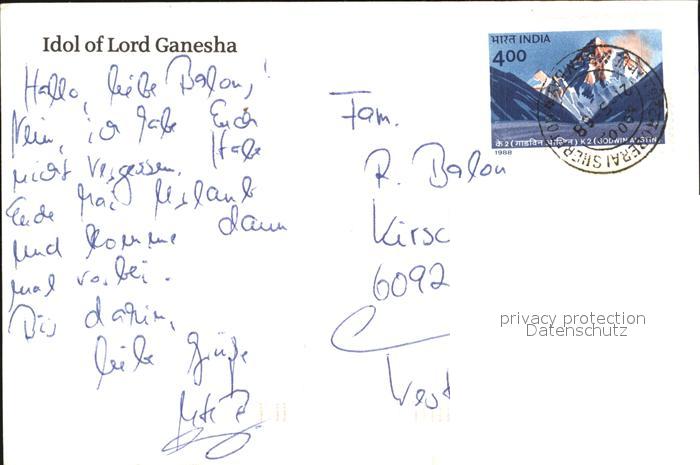 Idol of Lord Ganesha
Hallo, liebe Balon,!
Nein, ich habe Euch
nicht vergessen. Habe
Ende Mai Urlaub
und komme dann
mal vorbei.
Bis dahin,
liebe Grüße
Fam.
R. Balon
Kirsc
6092
West
भारत INDIA
4.00
के 2 (गाडविन आस्टिन) K2 (GODWIN AUSTIN)
1988
privacy protection
Datenschutz